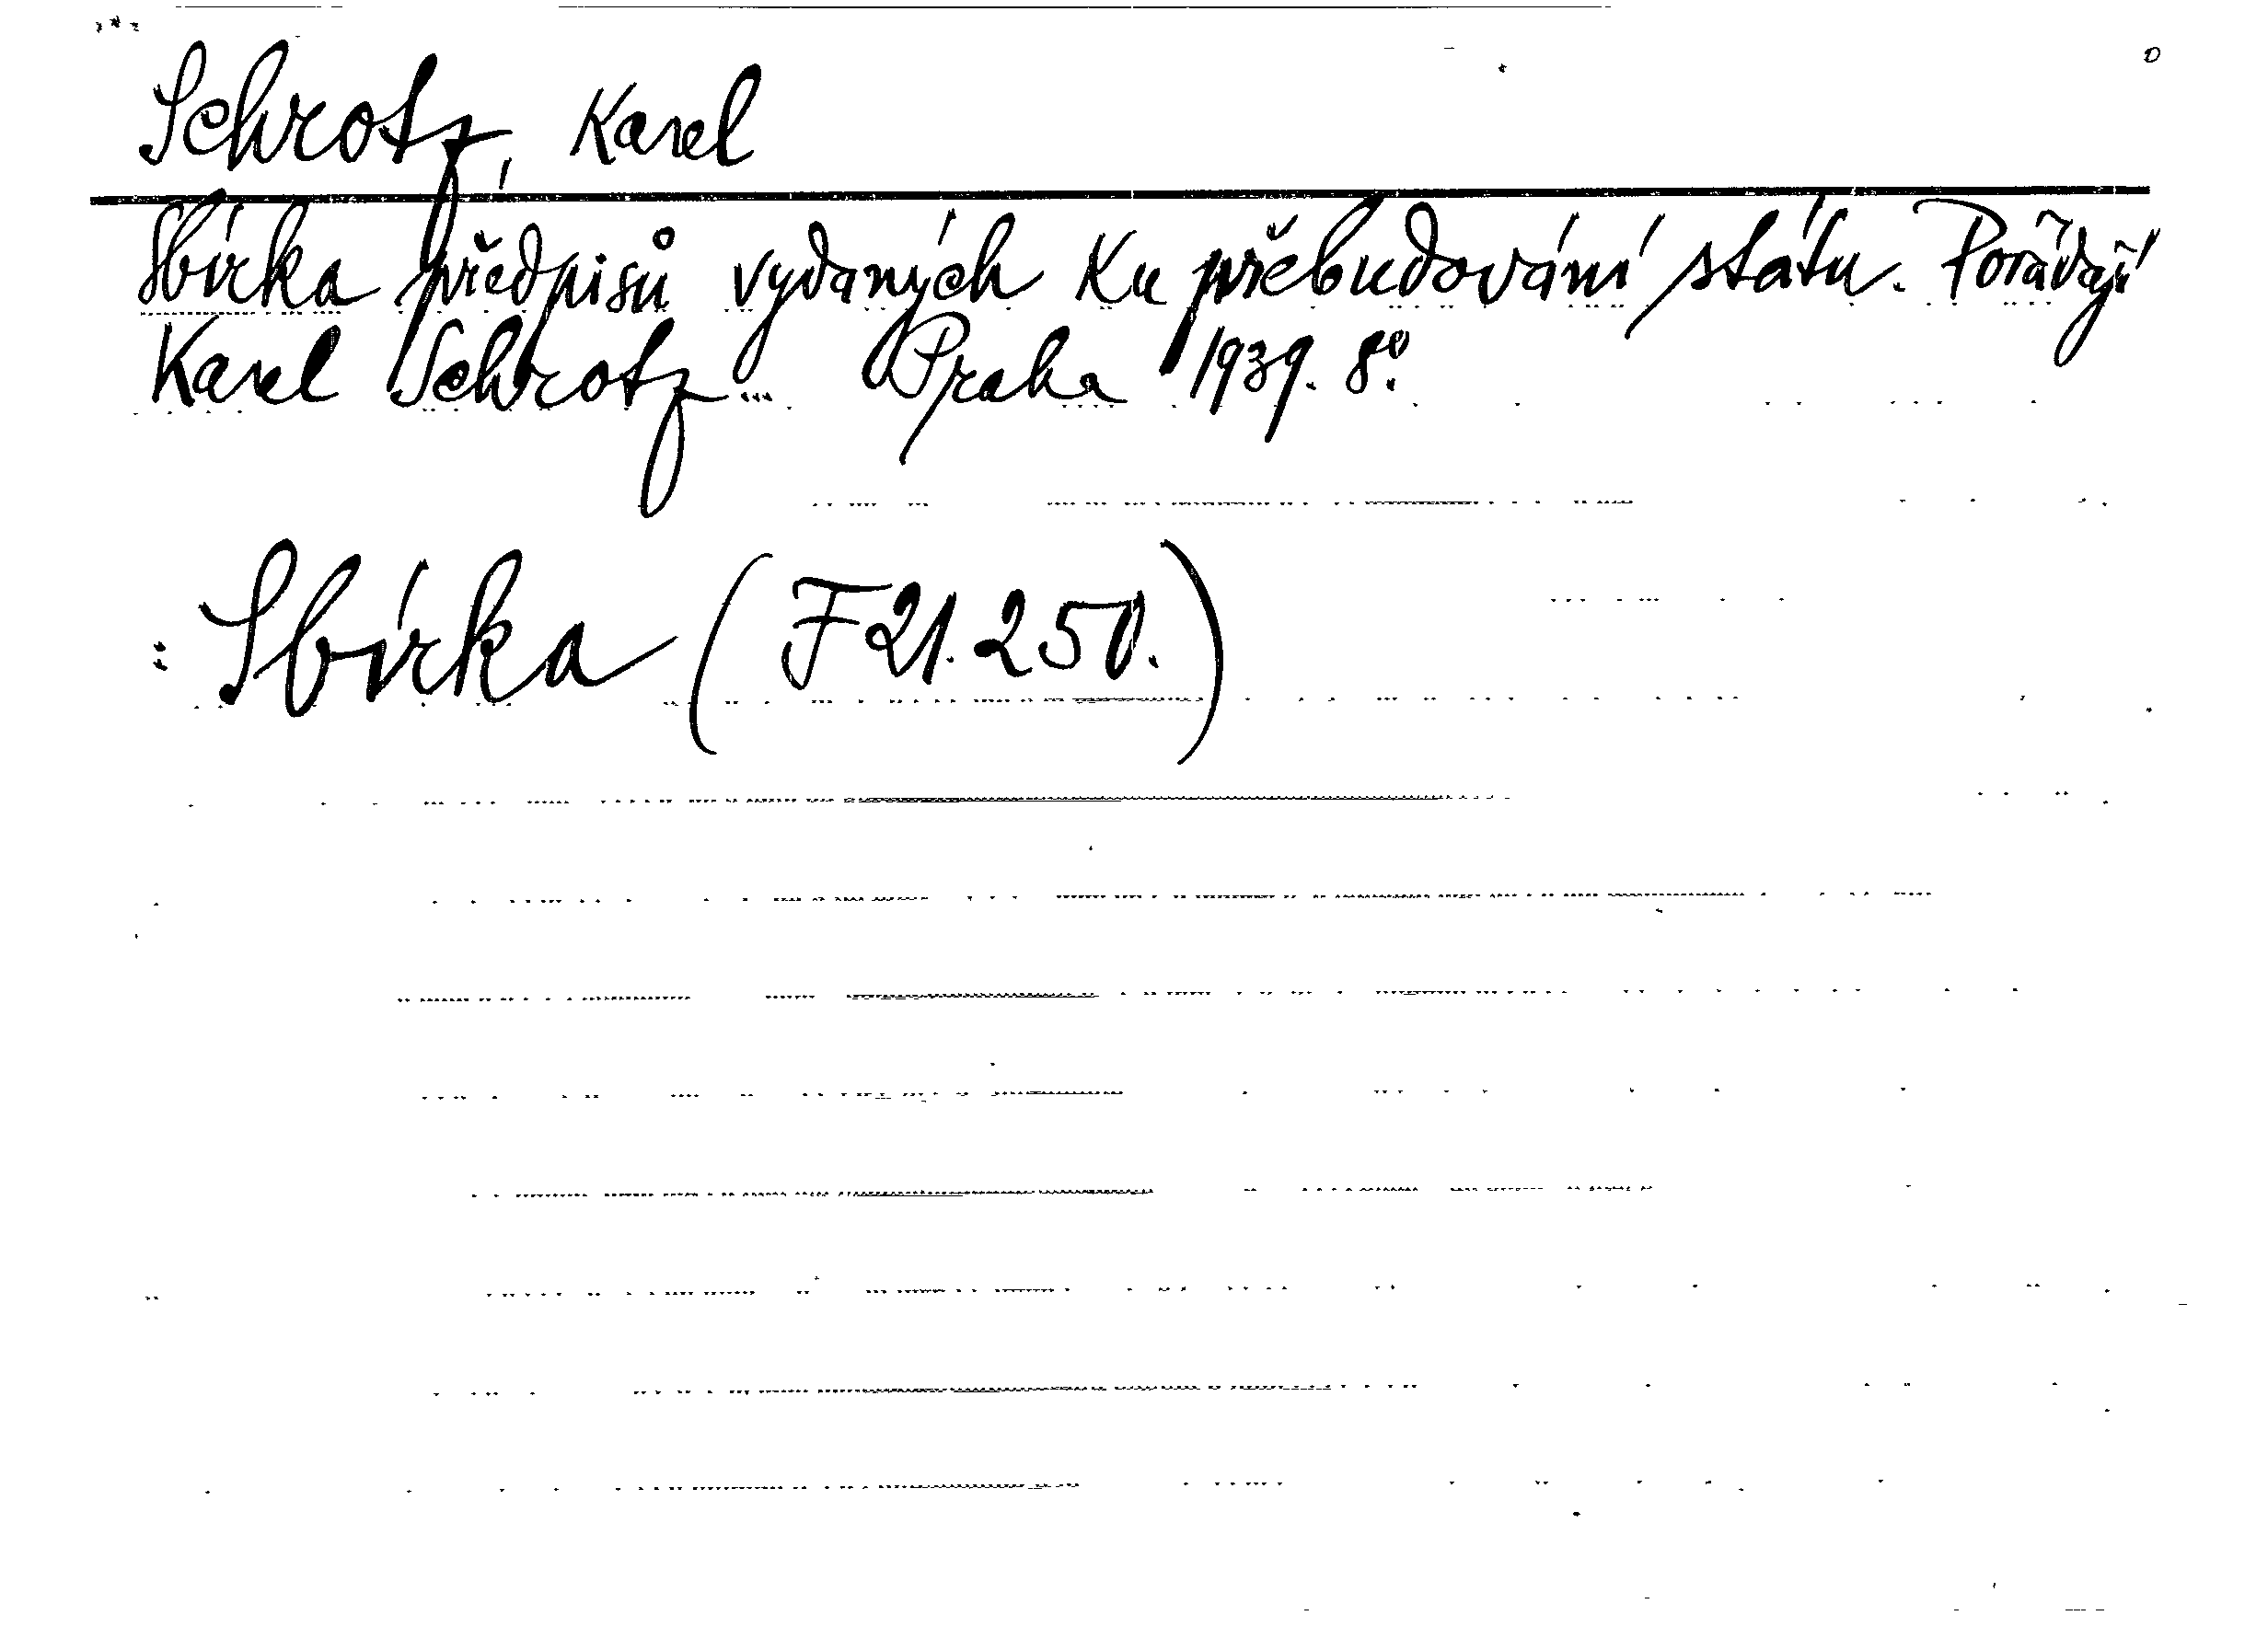 Schrotz, Karel
Sbírka předpisů vydaných ku přebudování státu. Pořádají
Karel Schrotz... Praha 1939. 8º.
: Sbírka (F 21.250.)